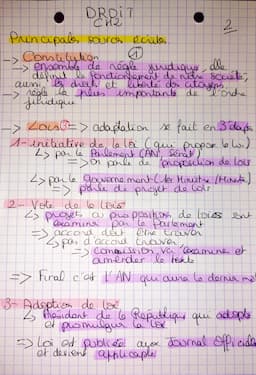 DROIT
CH2
2
Principales sources écrites
-> Constitution ①
-> ensemble de règle juridique, elle
définit le fonctionnement de notre société,
aussi les droits et liberté des citoyens
-> règle la plus importante de l'ordre
juridique
-> Lois ③ => adaptation se fait en 3 étapes
1- initiative de la loi (qui propose la loi)
↳ par le Parlement (AN, Sénat)
=> On parle de proposition de loi
↳ par le Gouvernement (1er Ministre/Ministre)
=> parle de projet de loi
2- Vote de la lois
↳ projets ou proposition de loies sont
examiné par le parlement
=> accord doit être trouver
↳ pas d'accord trouver
=> commission va examiné et
amender le texte
=> Final c'est l'AN qui aura le dernier mot
3- Adoption de loi
↳ Président de la République qui adopte
et promulgue la loi
=> Loi est publiée avec Journal Officiel
et devient applicable